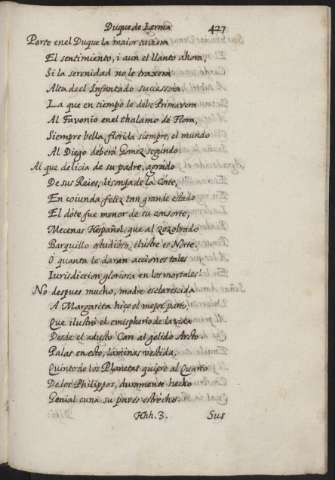 Duque de Lerma 427
Porto en el Duque la maior
El sentimiento, i aun el llanto ahora,
Si la serenidad no le traxera
Alta del Infantado successora
La que en tiempo le debe Primavera
Al Favonio en el thalamo de Flora,
Siempre bella, florida siempre, el mundo
Al Diego deberá Gomez segundo.
Al que delicia de su padre, agrado
De sus Reies, lisonja de la Corte,
En coiunda feliz tan grande estado
El dote fue menor de su consorte,
Mecenas Español, que al zozobrado
Barquillo estudioso, ilustre es Norte,
O quanta le daran acciones tales
Iurisdiccion gloriosa en los mortales!
No despues mucho, madre esclarecida
A Margarita hiço el mejor parto,
Que ilustró el emispherio de la vida
Desde el adusto Can al gelido Arcto
Palas en esto, laminas vestida,
Quinto de los Planetas quiere al Quarto
De los Philippos, duramente hecho
Genial cuna su pavés estrecho.
Hhh. 3. Sus